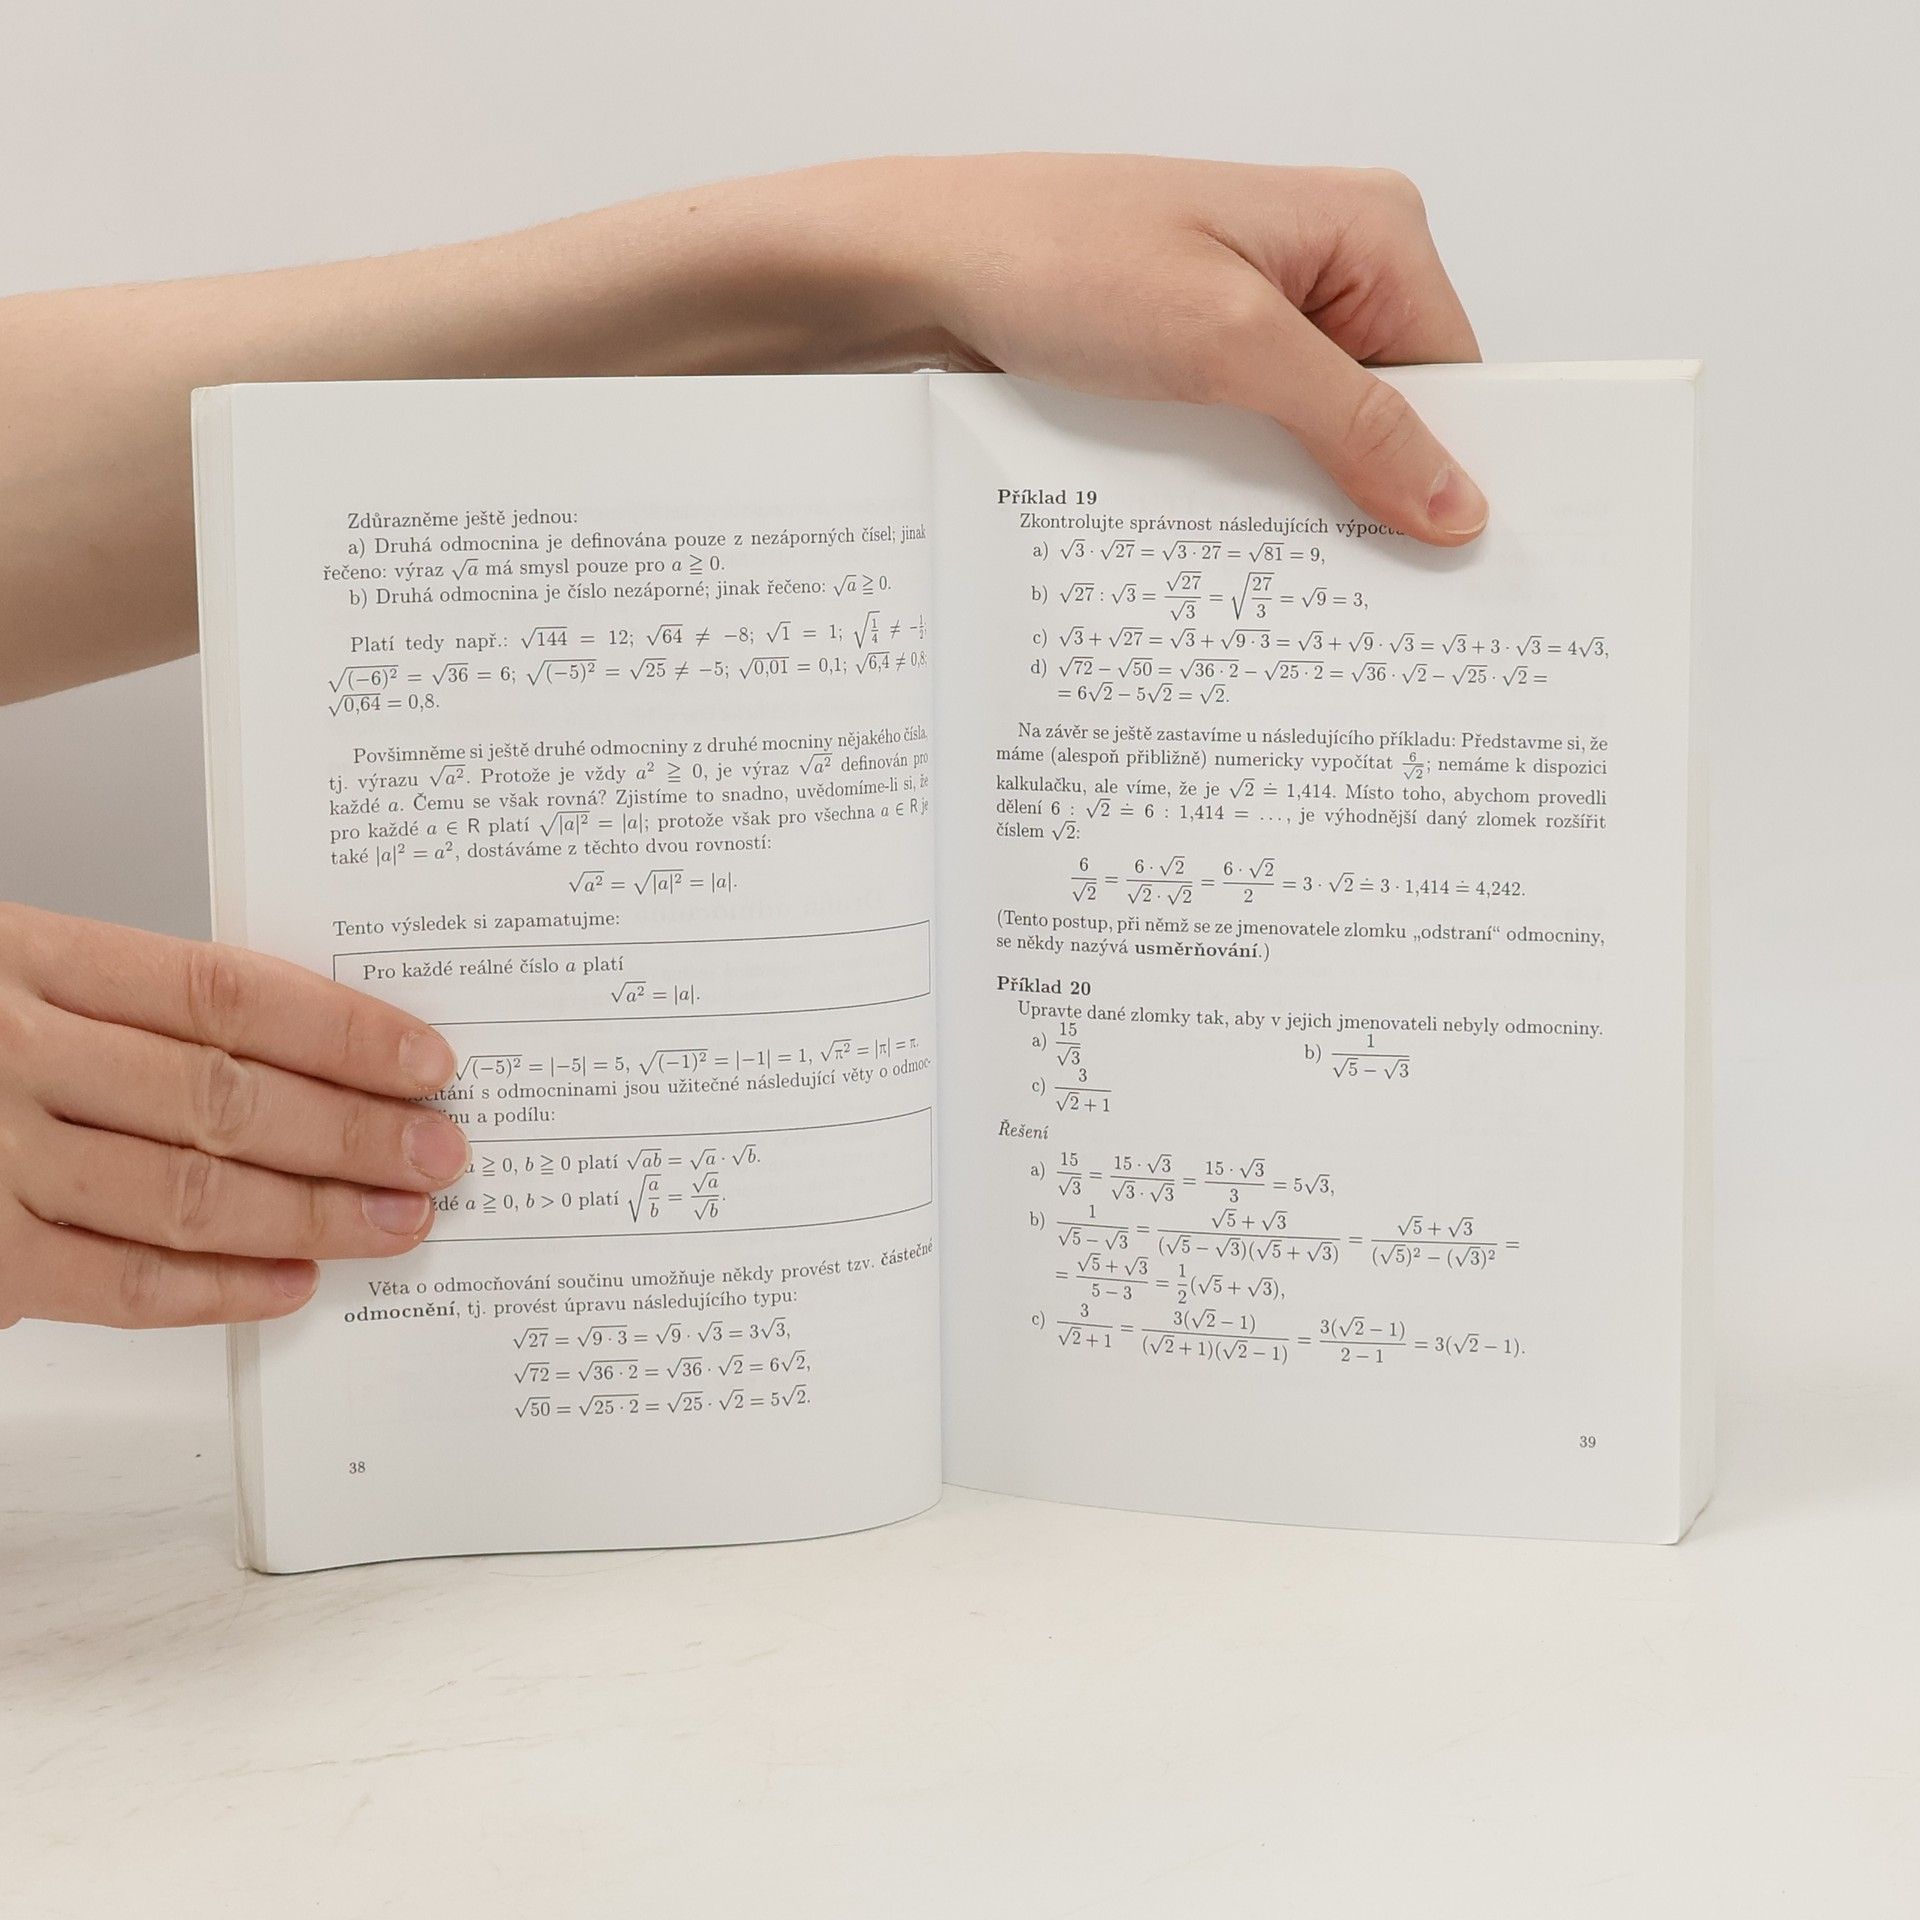 Zdůrazněme ještě jednou:
a) Druhá odmocnina je definována pouze z nezáporných čísel; jinak
řečeno: výraz √a má smysl pouze pro a ≧ 0.
b) Druhá odmocnina je číslo nezáporné; jinak řečeno: √a ≧ 0.
Platí tedy např.: √144 = 12; √64 ≠ −8; √1 = 1; √(1/4) ≠ −1/2;
√((−6)²) = √36 = 6; √((−5)²) = √25 ≠ −5; √0,01 = 0,1; √6,4 ≠ 0,8;
√0,64 = 0,8.
Povšimněme si ještě druhé odmocniny z druhé mocniny nějakého čísla,
tj. výrazu √(a²). Protože je vždy a² ≧ 0, je výraz √(a²) definován pro
každé a. Čemu se však rovná? Zjistíme to snadno, uvědomíme-li si, že
pro každé a ∈ R platí √(|a|²) = |a|; protože však pro všechna a ∈ R je
také |a|² = a², dostáváme z těchto dvou rovností:
√(a²) = √(|a|²) = |a|.
Tento výsledek si zapamatujme:
Pro každé reálné číslo a platí
√(a²) = |a|.
√((−5)²) = |−5| = 5, √((−1)²) = |−1| = 1, √(π²) = |π| = π.
s odmocninami jsou užitečné následující věty o odmoc-
a podílu:
a ≧ 0, b ≧ 0 platí √(ab) = √a · √b.
a ≧ 0, b > 0 platí √(a/b) = √a/√b.
Věta o odmocňování součinu umožňuje někdy provést tzv. částečné
odmocnění, tj. provést úpravu následujícího typu:
√27 = √(9 · 3) = √9 · √3 = 3√3,
√72 = √(36 · 2) = √36 · √2 = 6√2,
√50 = √(25 · 2) = √25 · √2 = 5√2.
38
Příklad 19
Zkontrolujte správnost následujících
a) √3 · √27 = √(3 · 27) = √81 = 9,
b) √27 : √3 = √27/√3 = √(27/3) = √9 = 3,
c) √3 + √27 = √3 + √(9 · 3) = √3 + √9 · √3 = √3 + 3 · √3 = 4√3,
d) √72 − √50 = √(36 · 2) − √(25 · 2) = √36 · √2 − √25 · √2 =
= 6√2 − 5√2 = √2.
Na závěr se ještě zastavíme u následujícího příkladu: Představme si, že
máme (alespoň přibližně) numericky vypočítat 6/√2; nemáme k dispozici
kalkulačku, ale víme, že je √2 ≐ 1,414. Místo toho, abychom provedli
dělení 6 : √2 ≐ 6 : 1,414 = ..., je výhodnější daný zlomek rozšířit
číslem √2:
6/√2 = (6 · √2)/(√2 · √2) = (6 · √2)/2 = 3 · √2 ≐ 3 · 1,414 ≐ 4,242.
(Tento postup, při němž se ze jmenovatele zlomku „odstraní“ odmocniny,
se někdy nazývá usměrňování.)
Příklad 20
Upravte dané zlomky tak, aby v jejich jmenovateli nebyly odmocniny.
a) 15/√3 b) 1/(√5 − √3)
c) 3/(√2 + 1)
Řešení
a) 15/√3 = (15 · √3)/(√3 · √3) = (15 · √3)/3 = 5√3,
b) 1/(√5 − √3) = (√5 + √3)/((√5 − √3)(√5 + √3)) = (√5 + √3)/((√5)² − (√3)²) =
= (√5 + √3)/(5 − 3) = 1/2(√5 + √3),
c) 3/(√2 + 1) = 3(√2 − 1)/((√2 + 1)(√2 − 1)) = 3(√2 − 1)/(2 − 1) = 3(√2 − 1).
39